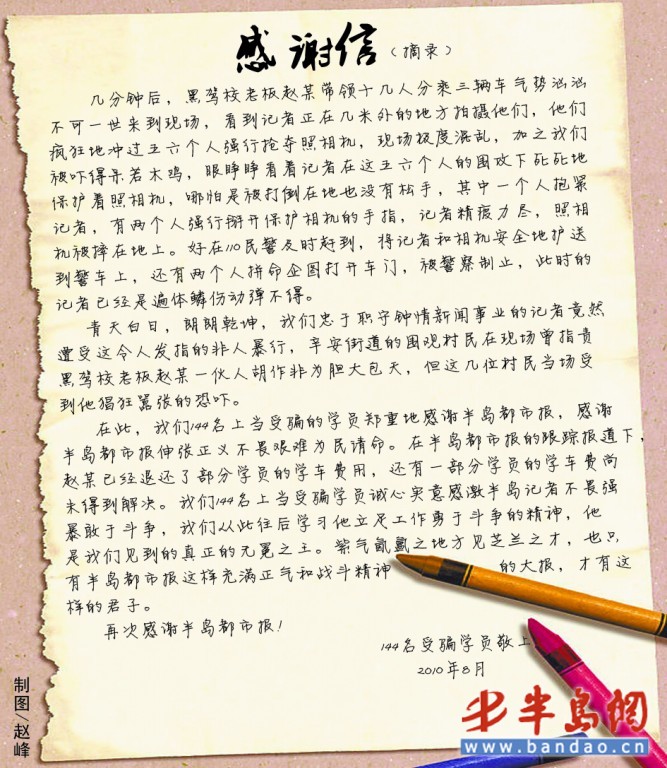 感谢信（摘录）
几分钟后，黑驾校老板赵某带领十几人分乘三辆车气势汹汹
不可一世来到现场，看到记者正在几米外的地方拍摄他们，他们
疯狂地冲过五六个人强行抢夺照相机，现场极度混乱，加之我们
被吓得呆若木鸡，眼睁睁看着记者在这五六个人的围攻下死死地
保护着照相机，哪怕是被打倒在地也没有松手，其中一个人抱紧
记者，有两个人强行掰开保护相机的手指，记者精疲力尽，照相
机被摔在地上。好在110民警及时赶到，将记者和相机安全地护送
到警车上，还有两个人拼命企图打开车门，被警察制止，此时的
记者已经是遍体鳞伤动弹不得。
青天白日，朗朗乾坤，我们忠于职守钟情新闻事业的记者竟然
遭受这令人发指的非人暴行，辛安街道的围观村民在现场曾指责
黑驾校老板赵某一伙人胡作非为胆大包天，但这几位村民当场受
到他猖狂嚣张的恐吓。
在此，我们144名上当受骗的学员郑重地感谢半岛都市报，感谢
半岛都市报伸张正义不畏艰难为民请命。在半岛都市报的跟踪报道下，
赵某已经退还了部分学员的学车费用，还有一部分学员的学车费尚
未得到解决。我们144名上当受骗学员诚心实意感激半岛记者不畏强
暴敢于斗争，我们从此往后学习他立足工作勇于斗争的精神，他
是我们见到的真正的无冕之王。紫气氤氲之地方见芝兰之才，也只
有半岛都市报这样充满正气和战斗精神的大报，才有这
样的君子。
再次感谢半岛都市报！
144名受骗学员敬上
2010年8月
制图/赵峰
半岛网
www.bandao.cn